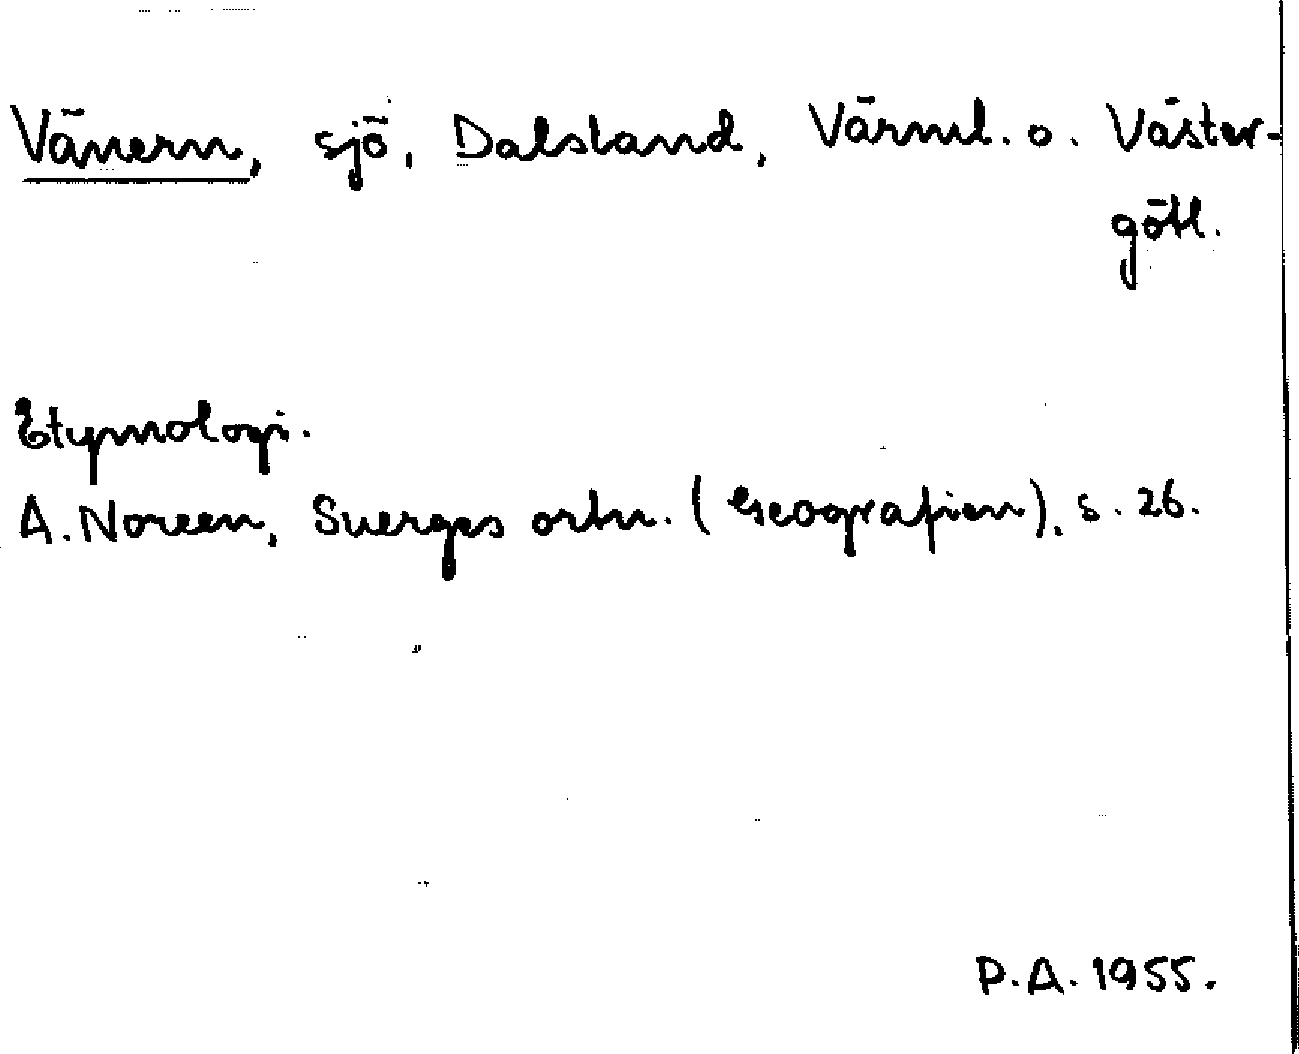 Vänern, sjö, Dalsland, Värml. o. Väster-
götl.
Etymologi.
A. Noreen, Sverges ortn. (Geografien), s. 26.
P.A. 1955.